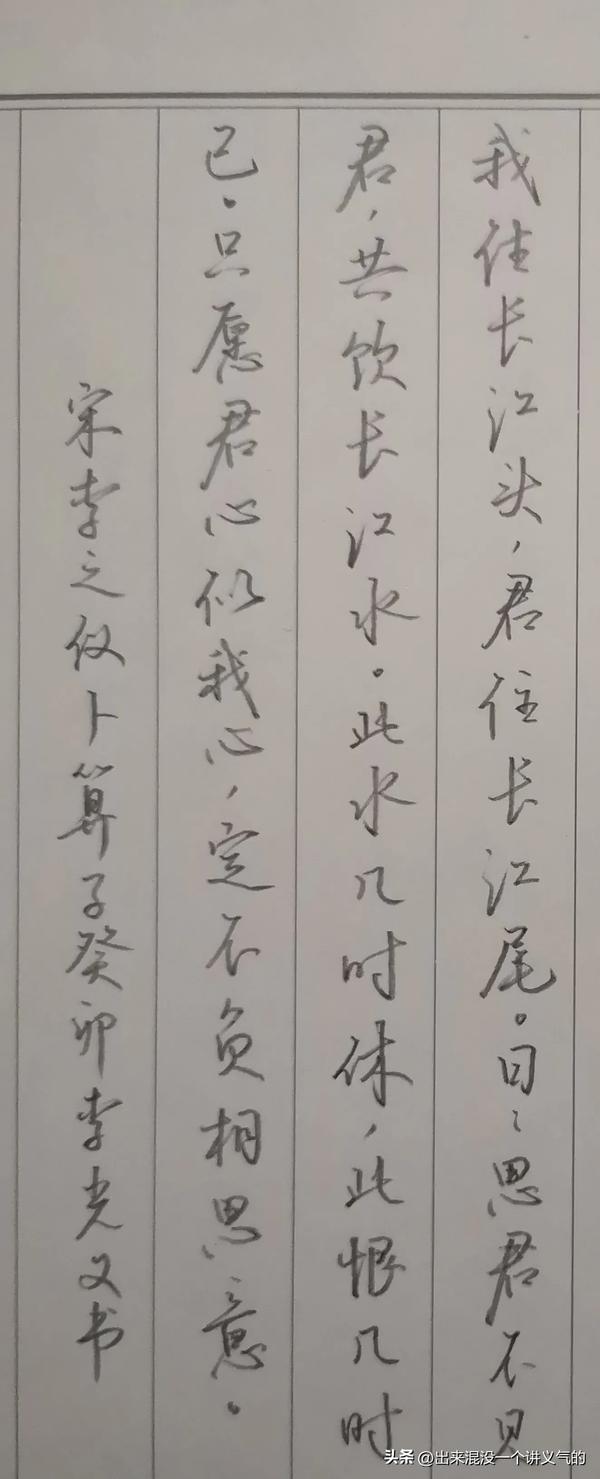 我住长江头，君住长江尾。日、思君不见
君，共饮长江水。此水几时休，此恨几时
已。只愿君心似我心，定不负相思意。
宋李之仪卜算子癸卯李光义书
头条 @出来混没一个讲义气的